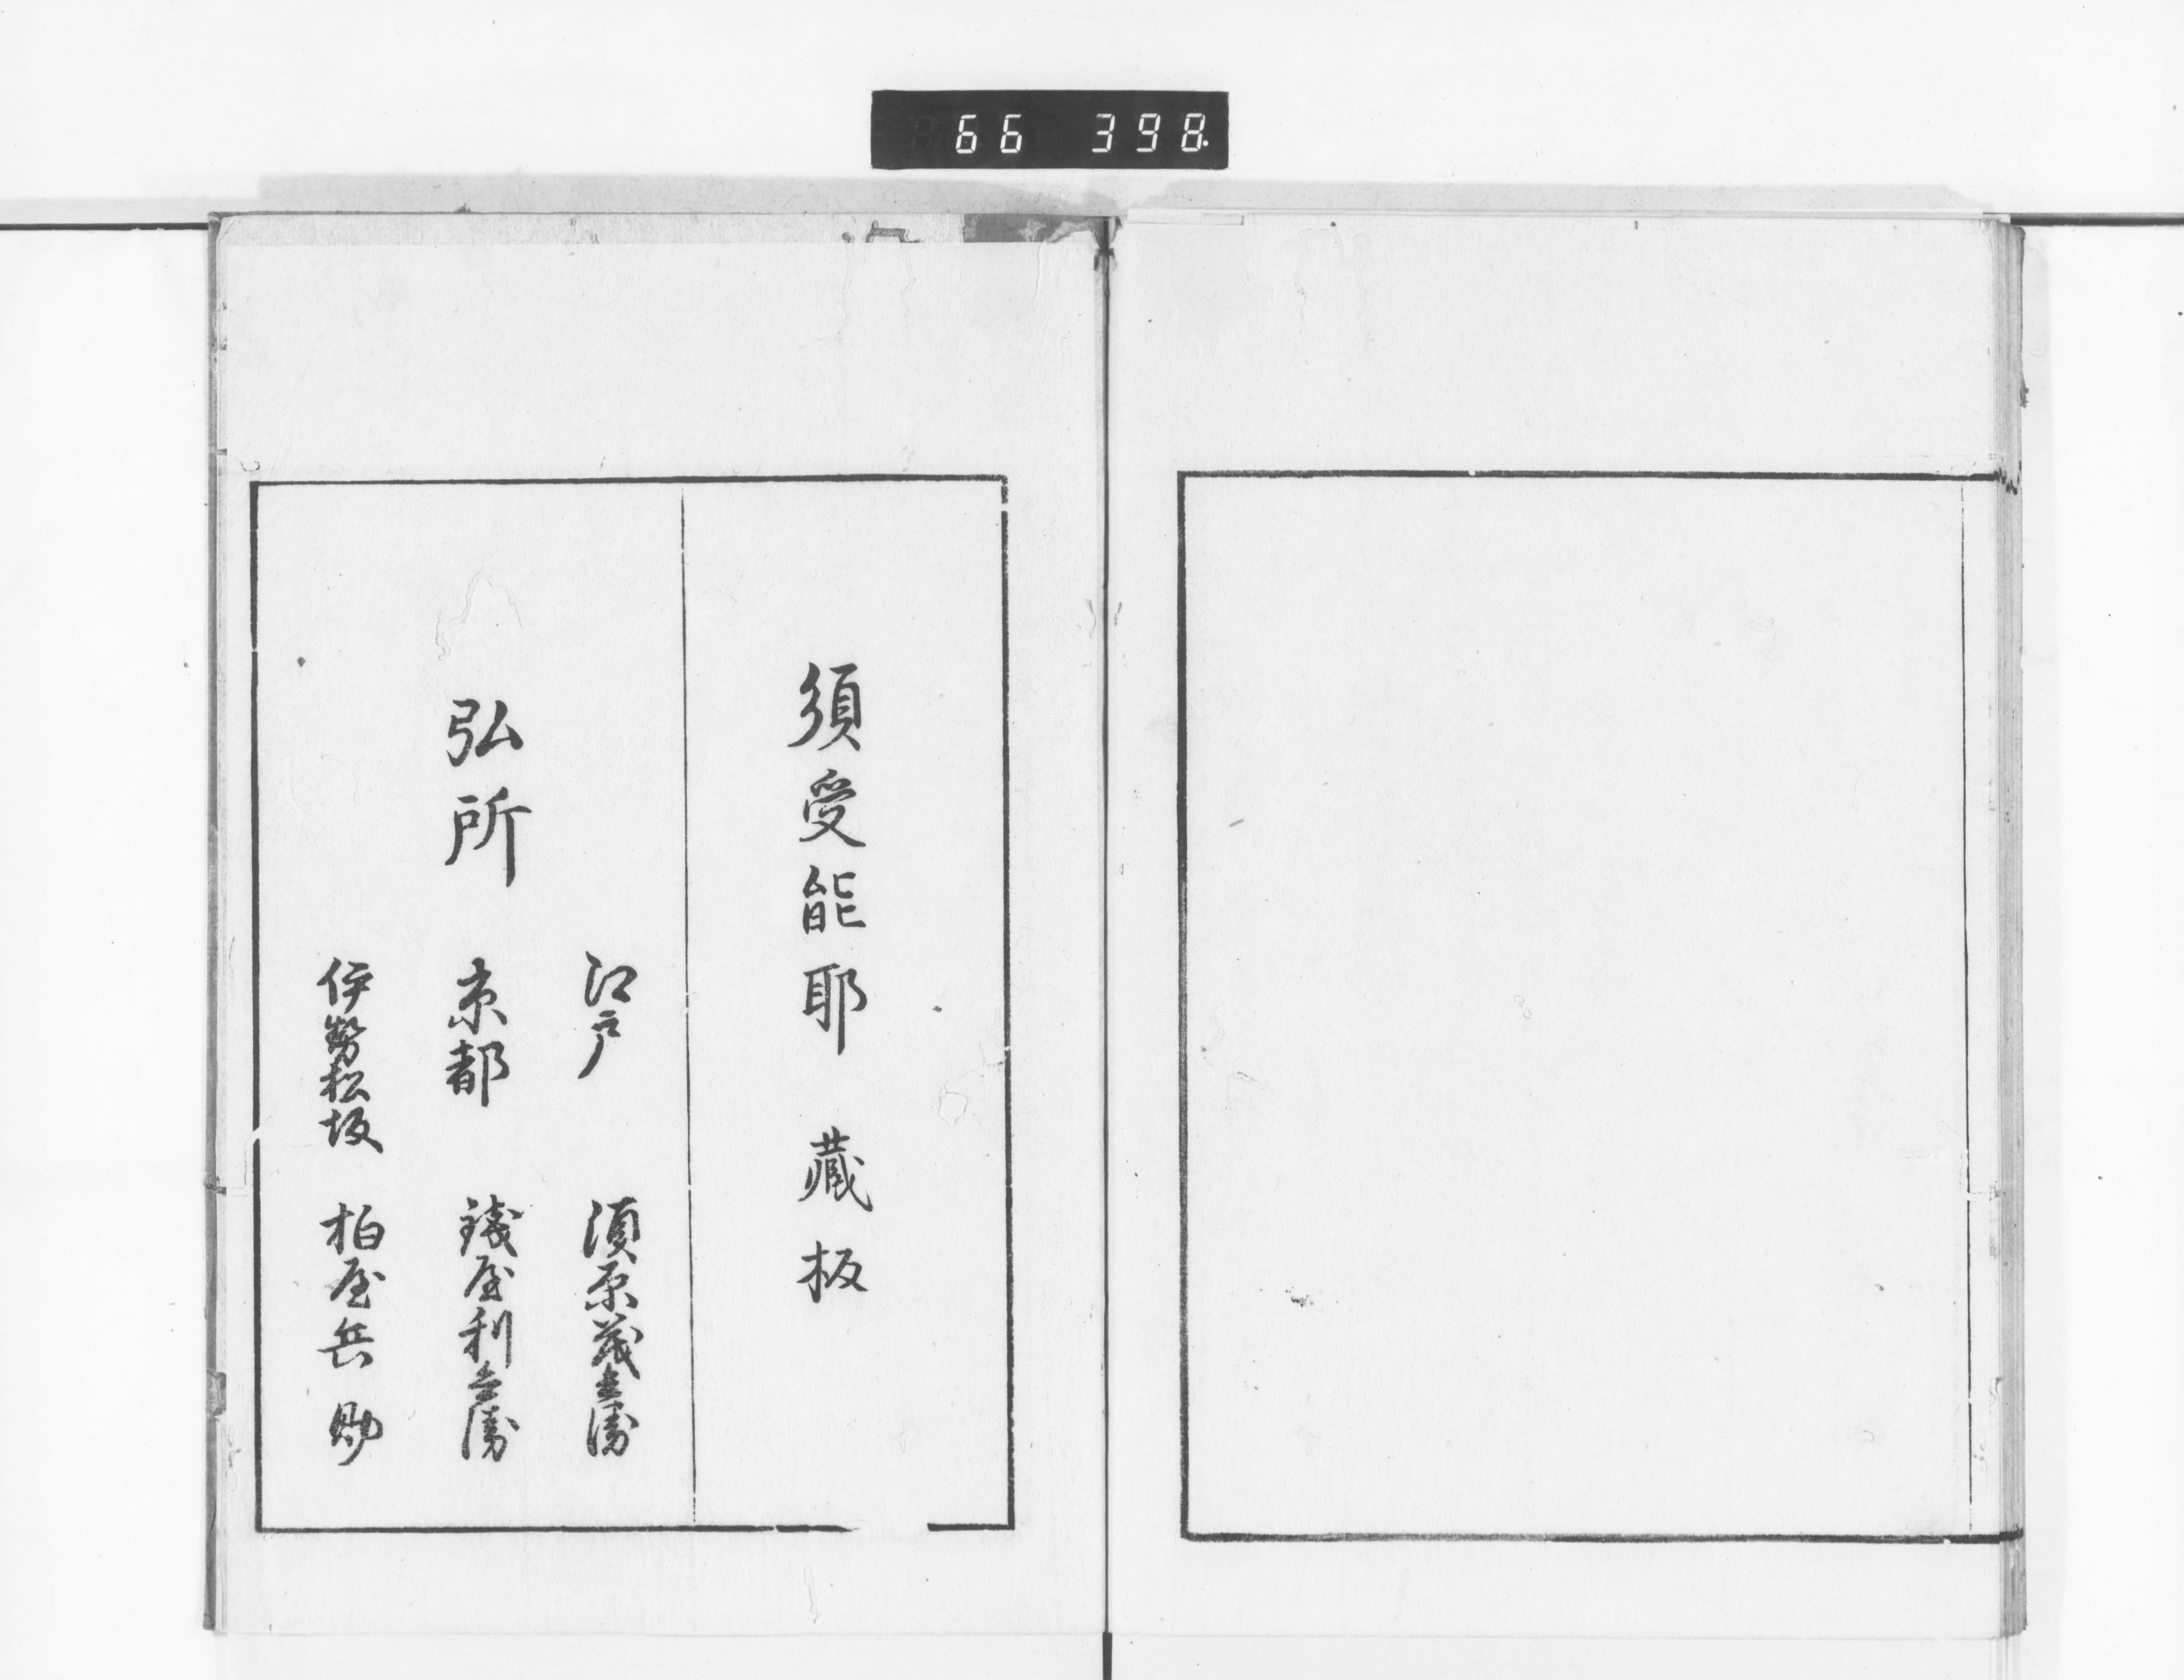 66 398
須受能耶 蔵板
弘所
江戸 須原茂兵衛
京都 銭屋利兵衛
伊勢松坂 柏屋兵助